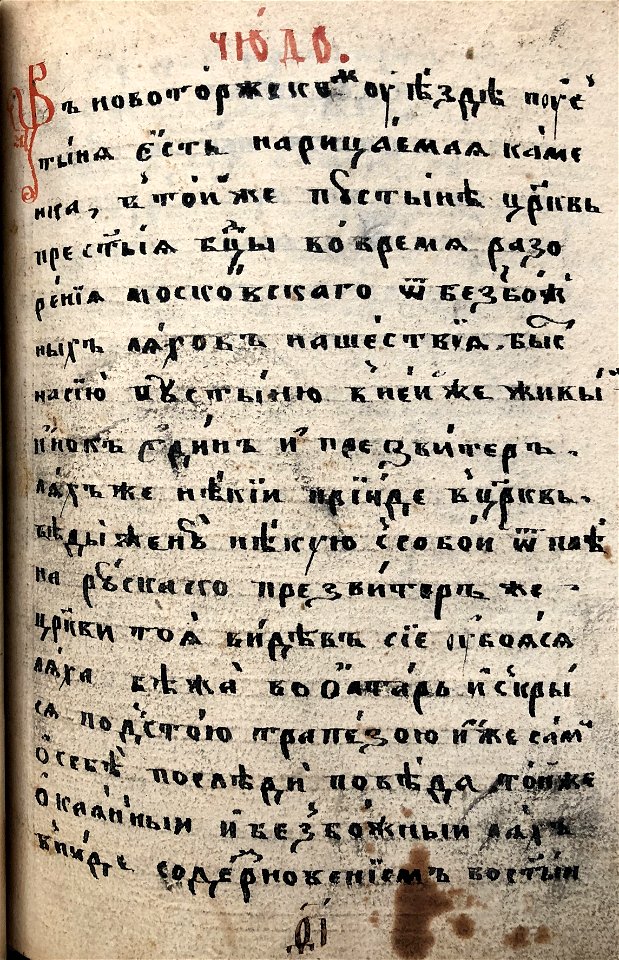 чю́до.
Въ новото́ржском оуѣ́здѣ пꙋс
ты́ня е҆́сть нарица́емая ка́ме
нка, в̾ то́й же пꙋсты́нѣ цр҃ковь
прест҃ы́я бц҃ы во вре́мя разо
ре́нїя моско́вскаго ѿ безбо́ж
ныхъ ля́ховъ наше́ствїя. бы́с
на сїю̀ пꙋсты́ню в̾ не́й же живы́й
и҆́нокъ е҆ди́нъ и҆ презви́теръ.
ля́хъ же нѣ́кїи прїи́де в̾ цр҃ковь.
вѣды̀ женꙋ̀ нѣ́кую с̾ собо́й ѿ плѣ
на рꙋ́скаго презви́теръ же
цр҃кви тоя̀ ви́дѣвъ сїѐ оубоя́ся
ля́ха бѣжа̀ во ѻ҆лта́рь и҆ скры́
ся под̾ ст҃о́ю трапе́зою и҆́же са́м
ѻ҆ себѣ̀ послѣдѝ повѣ́да то́й же
ѻ҆кая́нныи и҆ безбо́жныи ля́хъ
в̾ни́де со де́рзновенїемъ во ст҃ы́й